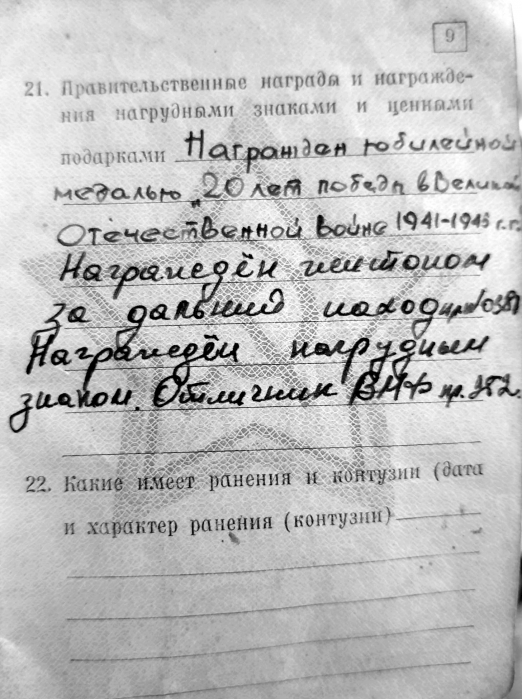 9
21. Правительственные награды и награжде-
ния нагрудными знаками и ценными
подарками Награжден юбилейной
медалью „20 лет победы в Великой
Отечественной войне 1941-1945 г.г.
Награждён жетоном
За дальний поход
Награждён нагрудным
знаком. Отличник ВМФ пр. 252.
22. Какие имеет ранения и контузии (дата
и характер ранения (контузии)